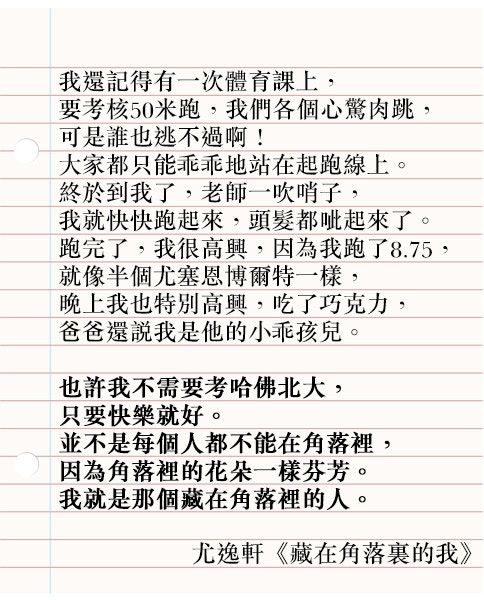 我還記得有一次體育課上，
要考核50米跑，我們各個心驚肉跳，
可是誰也逃不過啊！
大家都只能乖乖地站在起跑線上。
終於到我了，老師一吹哨子，
我就快快跑起來，頭髮都呲起來了。
跑完了，我很高興，因為我跑了8.75，
就像半個尤塞恩博爾特一樣，
晚上我也特別高興，吃了巧克力，
爸爸還説我是他的小乖孩兒。
也許我不需要考哈佛北大，
只要快樂就好。
並不是每個人都不能在角落裡，
因為角落裡的花朵一樣芬芳。
我就是那個藏在角落裡的人。
尤逸軒《藏在角落裏的我》